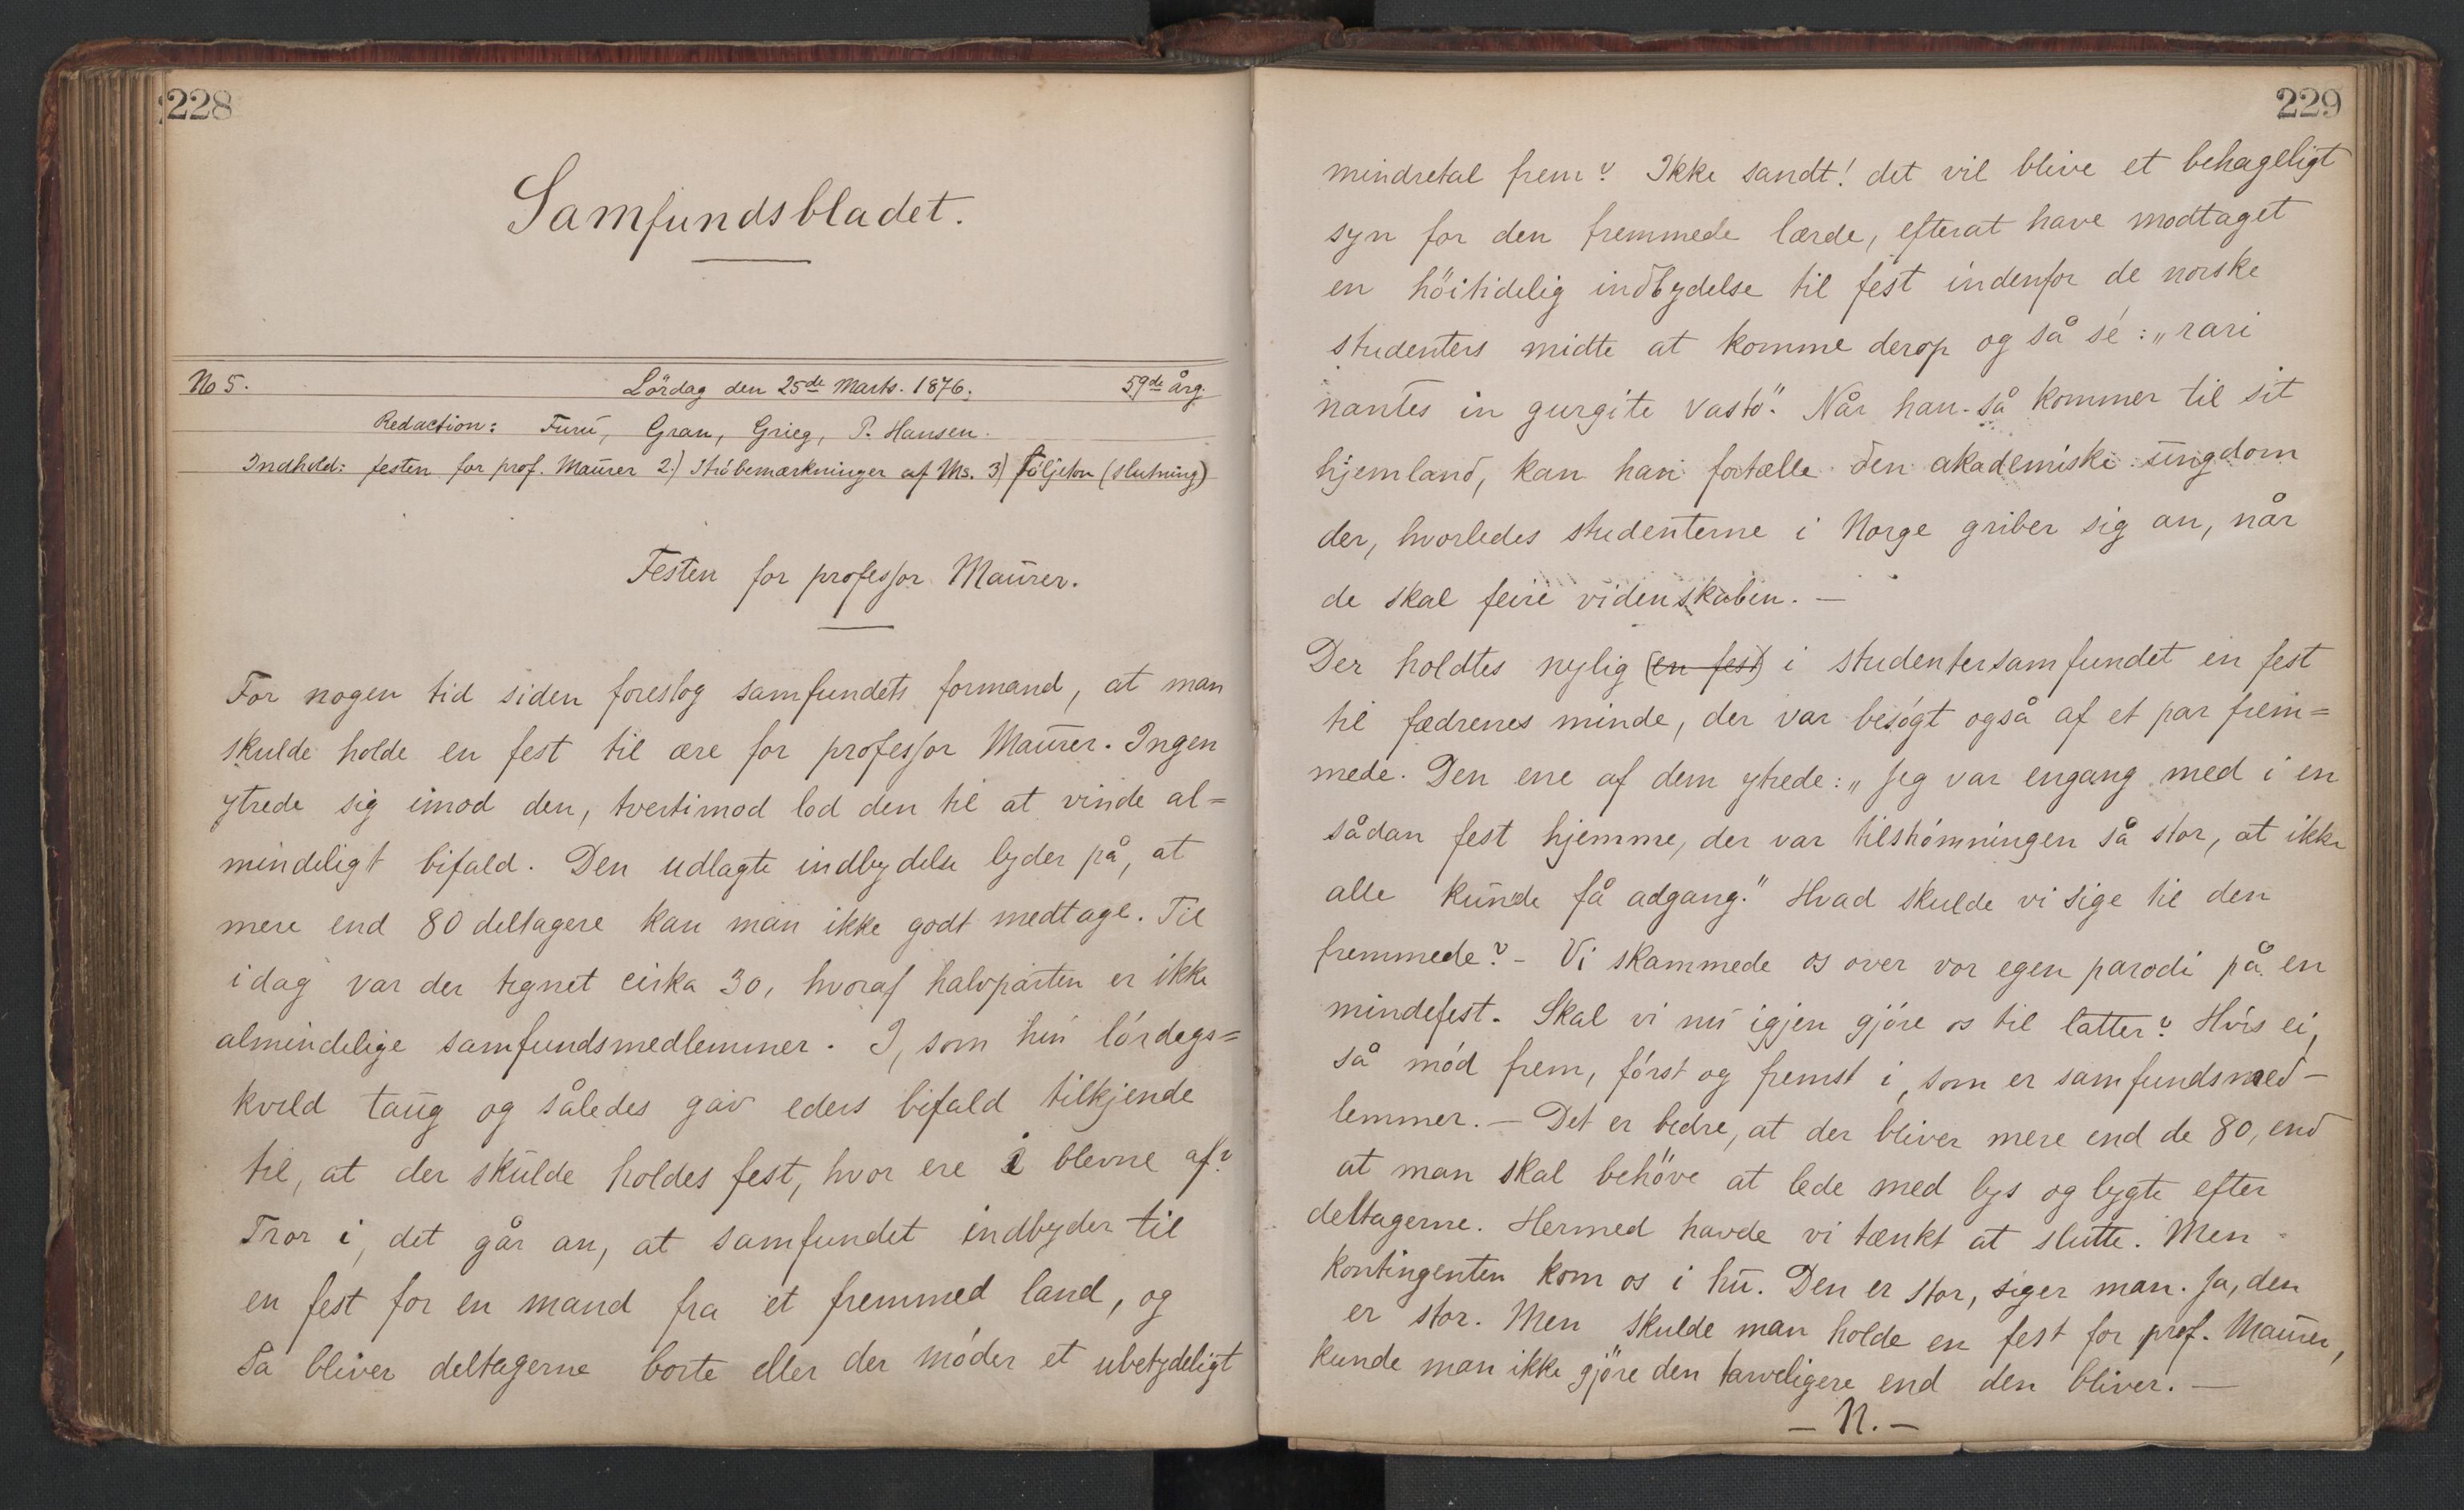 228
Samfundsbladet.
No 5. Lördag den 25de Marts. 1876. 59de Årg.
Redaction: Furu, Gran, Grieg, P. Hansen.
Indhold: festen for prof. Maurer 2.) Ströbemærkninger af Ms. 3) Följeton (slutning)
Festen for professor Maurer.
For nogen tid siden foreslog samfundets formand, at man
skulde holde en fest til ære for professor Maurer. Ingen
ytrede sig imod den, tvertimod lod den til at vinde al=
mindeligt bifald. Den udlagte indbydelse lyder på, at
mere end 80 deltagere kan man ikke godt medtage. Til
idag var der tegnet cirka 30, hvoraf halvparten er ikke
almindelige samfundsmedlemmer. I, som hin lördags=
kveld taug og således gav eders bifald tilkjende
til, at der skulde holdes fest, hvor ere i blevne af?
Tror i, det går an, at samfundet indbyder til
en fest for en mand fra et fremmed land, og
så bliver deltagerne borte eller der möder et ubetydeligt
229
mindretal frem? Ikke sandt! det vil blive et behageligt
syn for den fremmede lærde, efterat have modtaget
en höitidelig indbydelse til fest indenfor de norske
studenters midte at komme derop og så sé: „rari
nantes in gurgite vasto". Når han så kommer til sit
hjemland, kan han fortælle den akademiske ungdom
der, hvorledes studenterne i Norge griber sig an, når
de skal feire videnskaben. —
Der holdtes nylig (en fest) i studentersamfundet en fest
til fædrenes minde, der var besögt også af et par frem=
mede. Den ene af dem ytrede: „Jeg var engang med i en
sådan fest hjemme, der var tilströmningen så stor, at ikke
alle kunde få adgang." Hvad skulde vi sige til den
fremmede? - Vi skammede os over vor egen parodi på en
mindefest. Skal vi nu igjen gjöre os til latter? Hvis ei,
så möd frem, först og fremst i, som er samfundsmed-
lemmer. — Det er bedre, at der bliver mere end de 80, end
at man skal behöve at lede med lys og lygte efter
deltagerne. Hermed havde vi tænkt at slutte. Men
kontingenten kom os i hu. Den er stor, siger man. Ja, den
er stor. Men skulde man holde en fest for prof. Maurer,
kunde man ikke gjöre den tarveligere end den bliver. —
— N. —